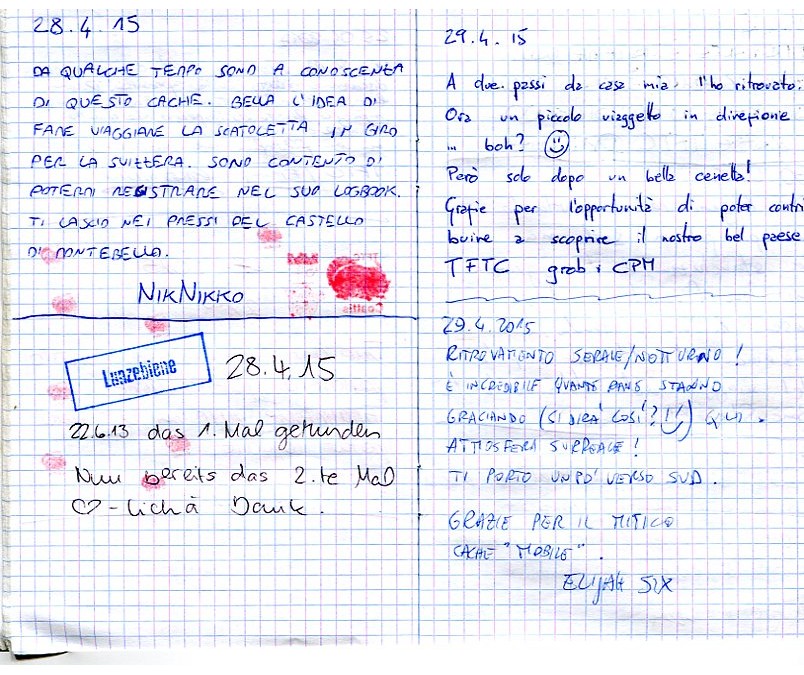 28.4.15
DA QUALCHE TEMPO SONO A CONOSCENZA
DI QUESTO CACHE. BELLA L'IDEA DI
FARE VIAGGIARE LA SCATOLETTA IN GIRO
PER LA SVIZZERA. SONO CONTENTO DI
POTERMI REGISTRARE NEL SUO LOGBOOK.
TI LASCIO NEI PRESSI DEL CASTELLO
DI MONTEBELLO.
NIKNIKKO
Lunzebiene
28.4.15
22.6.13 das 1. Mal gefunden
Nun bereits das 2.te Mal
♡-lichä Dank.
29.4.15
A due passi da casa mia l'ho ritrovato.
Ora un piccolo viaggetto in direzione
... boh? ☺
Però solo dopo un bella cenetta!
Grazie per l'opportunità di poter contri
buire a scoprire il nostro bel paese
TFTC grob i CPM
29.4.2015
RITROVAMENTO SERALE/NOTTURNO!
È INCREDIBILE QUANTE RANE STANNO
GRACIANDO (SI DIRÀ COSÌ?!!) QUI.
ATMOSFERA SURREALE!
TI PORTO UN PO' VERSO SUD.
GRAZIE PER IL MITICO
CACHE "MOBILE".
ELIJAH SIX